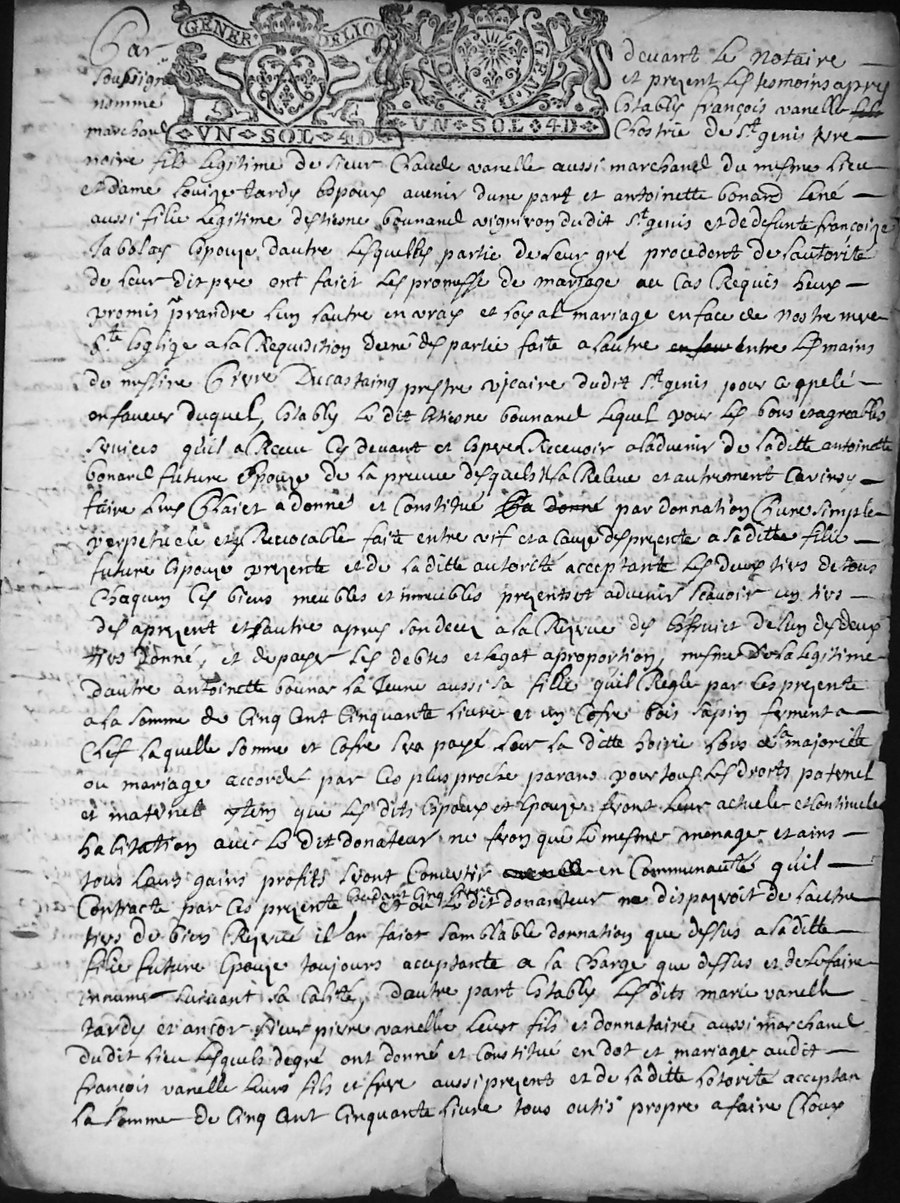 GENER DELION
GENER DE LION
VN SOL 4D
VN SOL 4D
Par devant Le Notaire
soussigné et present Les tesmoins apres
nommé Establis françois vanelle
marchand de St genis terre
noire fils Legitime de sieur Claude vanelle aussi marchand du mesme Lieu
et dame Louize tardy Espoux avenir dune part et antoinette bonard Lené
aussi fille Legitime destiesne bounard vigniron dudit St genis et de defunte françoize
Espouze dautre Lesquelles partie de Leur gré procedent de Lautorité
de Leur dit pre ont faict Les promesse de mariage au Cas Requis heux
promis prandre Lun Lautre en vray et Loyal mariage en face de nostre mere
Ste Esglize a La Requidition dune des partie faite a Lautre entre Les mains
de messire prestre vicaire dudit St genis pour ce apelé
en faveur duquel, Estably Le dit Estiesne bounard Lequel pour Les bons et agreables
services quil a Receu Cy devant et Espre Recevoir a Ladvenir de Laditte antoinette
bonard future Epouze de La preuve desquels il La Releve et autrement Car insy
faire Luy Plaict a donné et Constitué a donné par donnation Pure simple
perpetuele et yRevocable faite entre vif et a Cauze des prezente a saditte fille
future Espouze prezente et de Laditte autorité acceptante Les deux tiers de tous
Chaquun Ces biens meubles et immeubles prezent et advenir scavoir un tiers
des aprezent et Lautre apres son decez a La Rezerve des Esfruict de Lun des deux
tiers donné, et de payer Les debtes et Legat a proportion, mesme de La Legitime
dautre antoinette bounar La Jeune aussi sa fille quil Regle par Ces prezente
a La somme de Cinq Cent Cinquante Livre et un Cofre bois sapin ferment a
Clef Laquelle somme et Cofre sera payé sur La ditte hoirie Lors de sa majorité
ou mariage accordé par Ces plus proche parans pour tous Les droits paternel
et maternel ytem que Les dits Espoux et Epouze feront Leur actuele et Continuele
habitation avec Le dit donateur ne feron que Le mesme menage et ains
tous Leurs gains profits seront Convertir en Communauté quil
Contracte par Ces prezente et ou Le dit donanteur ne dispozeroit de Lautre
tiers de biens Rezervé il an faict samblable donnation que dessus a saditte
fille future Epouze toujours acceptante a La Charge que dessus et de Le faire
suivant sa Calité, dautre part Establis Les dits marié vanelle
tardy et ancor sieur pierre vanelle Leur fils et donnataire aussi marchand
dudit Lieu Lesquels de gré ont donné et Constitué en dot et mariage audit
françois vanelle Leurs fils et frere aussi prezent et de Laditte Lotorité acceptan
La somme de Cinq Cent Cinquante Livre tous outis propre a faire Cloux